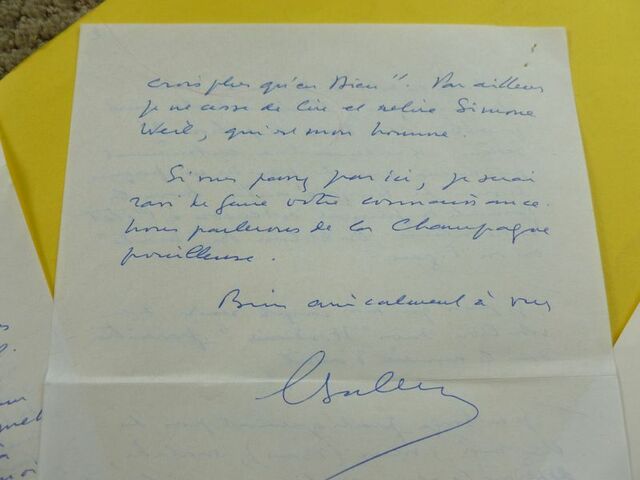 crois plus qu'en Dieu". Par ailleurs
je ne cesse de lire et relire Simone
Weil, qui est mon homme.
Si vous passez par ici, je serai
ravi de faire votre connaissance.
Nous parlerons de la Champagne
pouilleuse.
Bien amicalement à vous